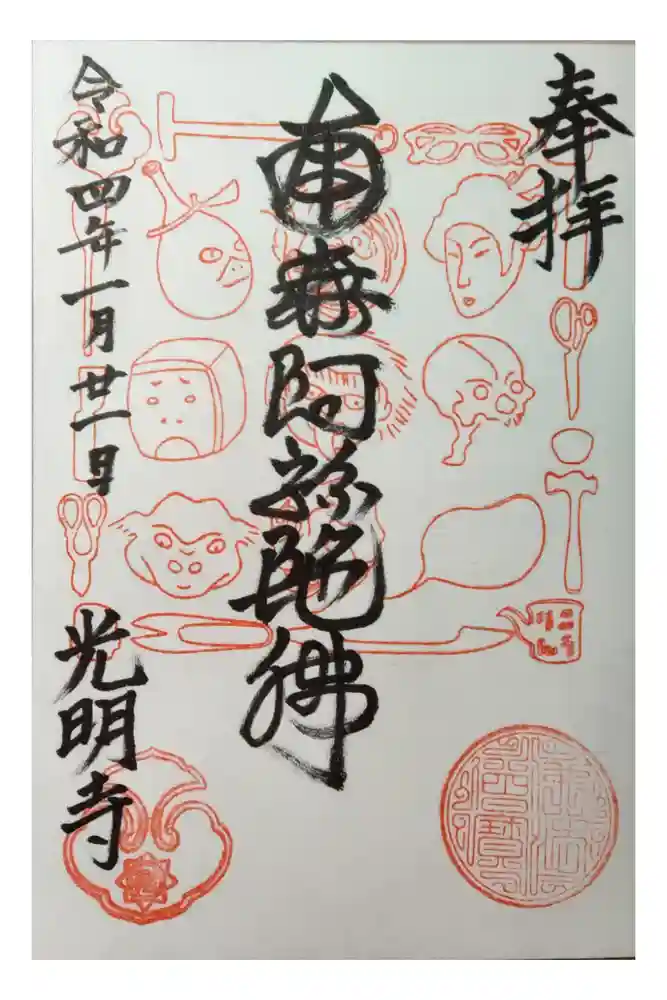 奉拝
南無阿弥陀佛
令和四年一月廿一日
光明寺